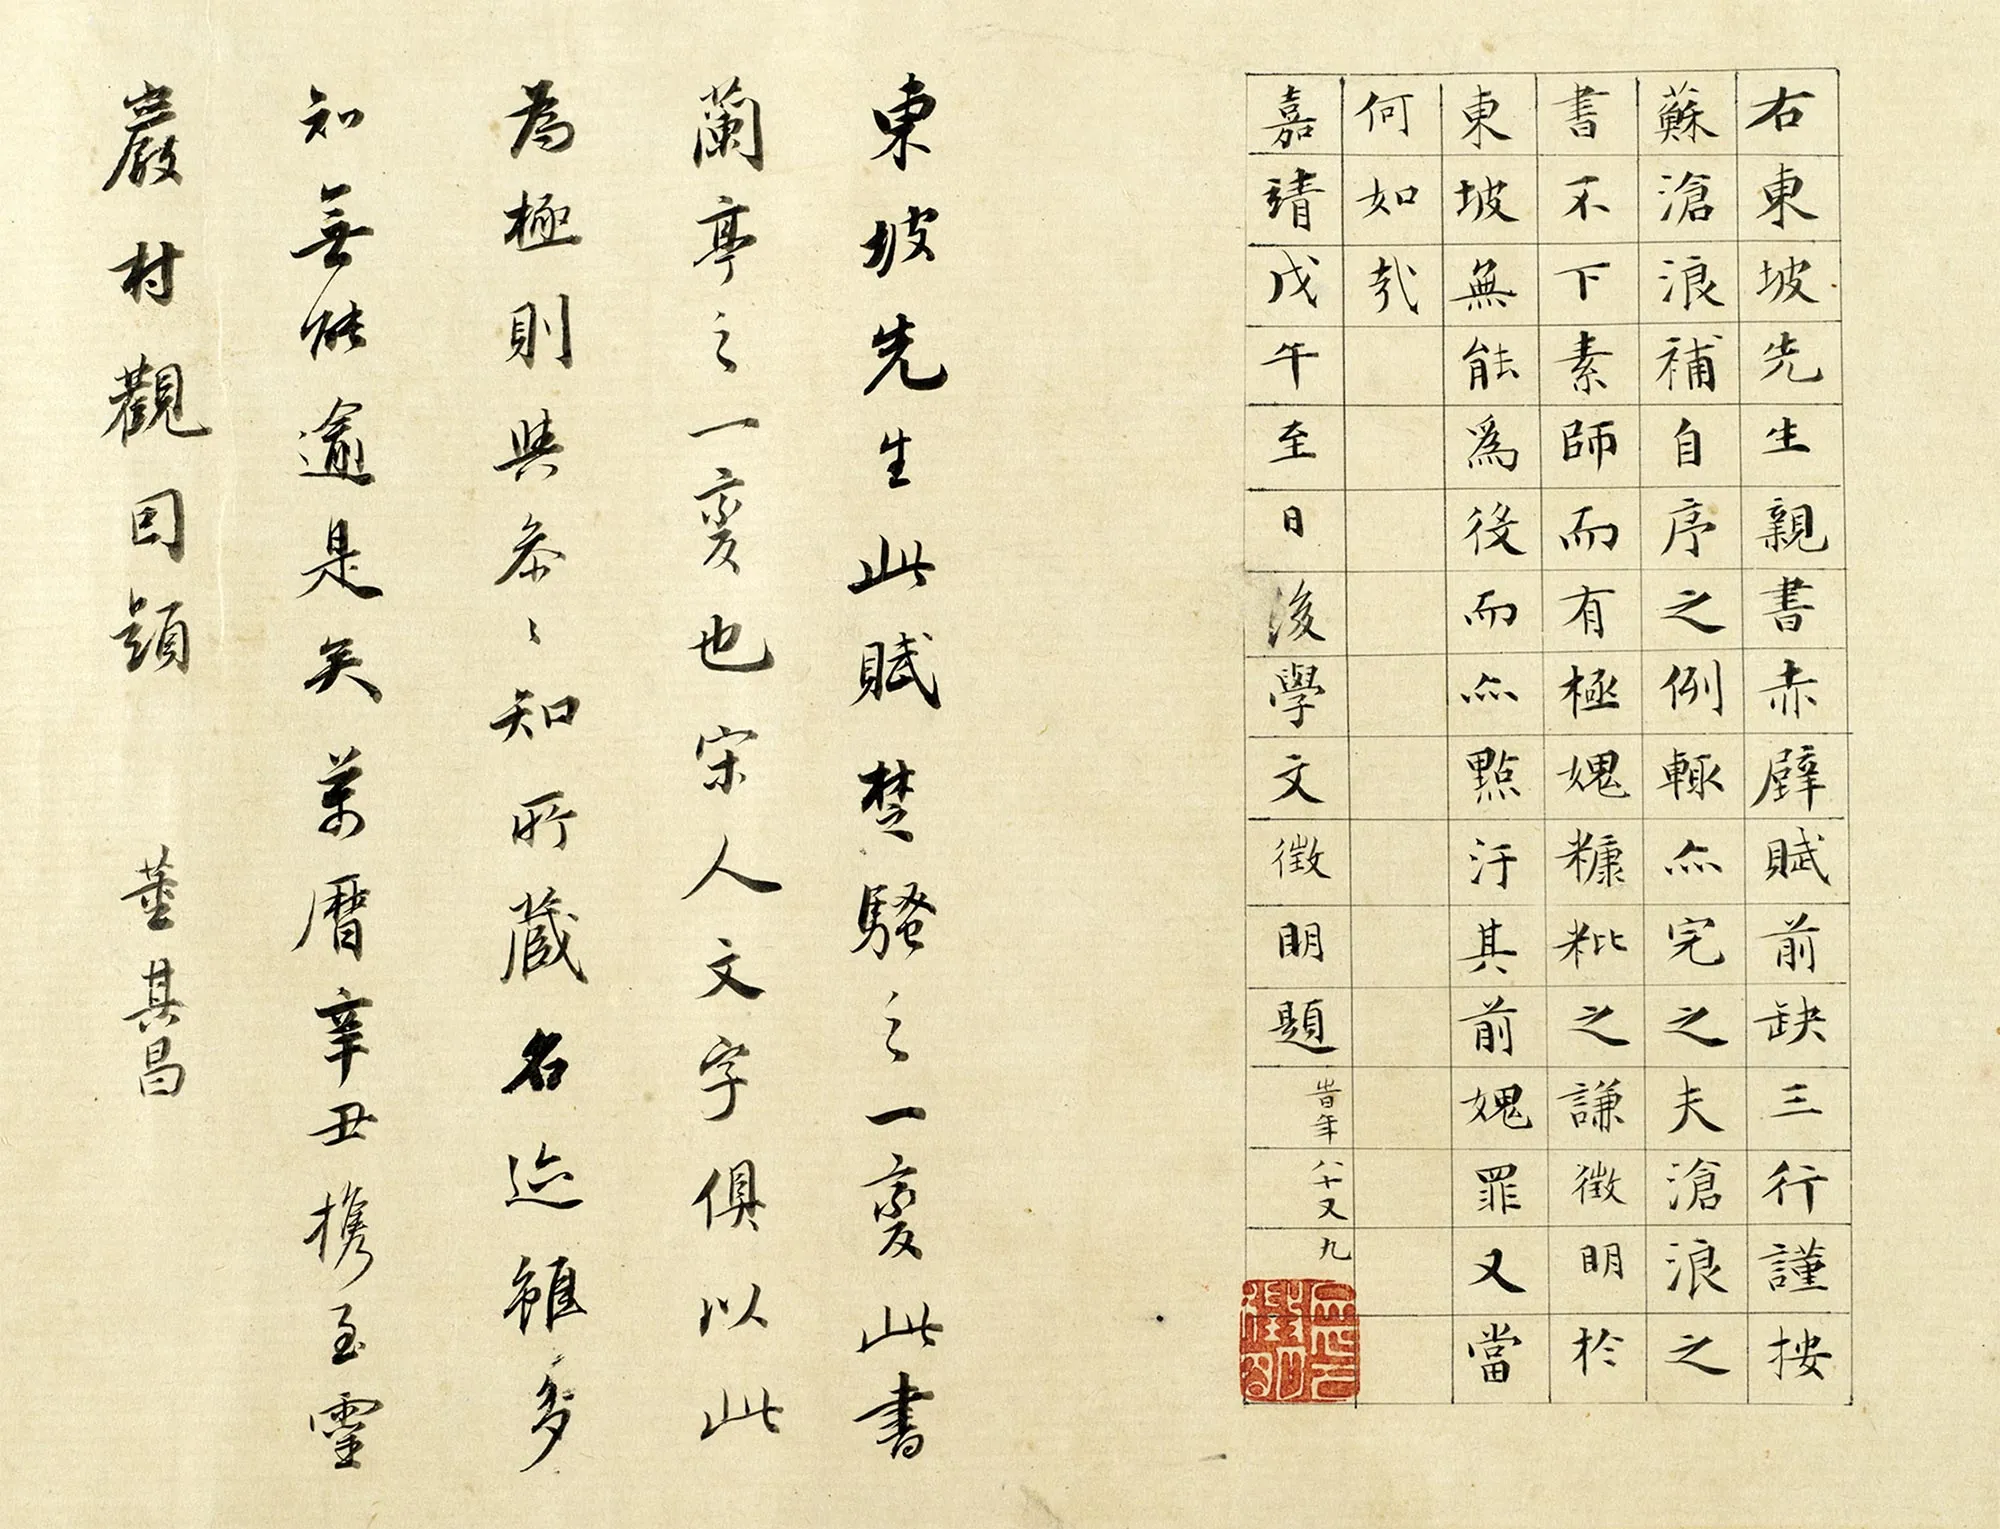 右東坡先生親書赤壁賦前缺三行謹按
蘇滄浪補自序之例輒亦完之夫滄浪之
書不下素師而有極媿糠粃之謙徵明於
東坡無能為役而亦點汙其前媿罪又當
何如哉
嘉靖戊午至日後學文徵明題
旹年八十又九
東坡先生此賦楚騷之一變此書
蘭亭之一變也宋人文字俱以此
為極則與參參知所藏名迹雖多
知無能逾是矣萬曆辛丑攜至靈
巖村觀因題 董其昌